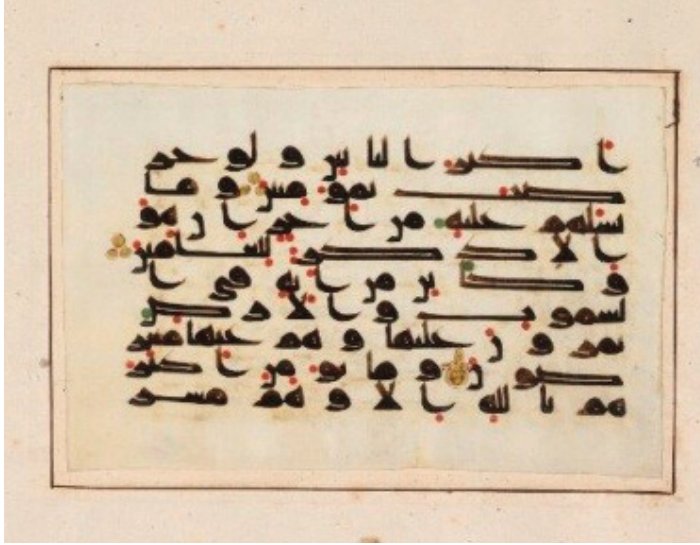 اكثر الناس ولو حر
صت بمومنين وما
تسلهم عليه من اجر ان هو
الا ذكر للعلمين
وكاين من اية في ا
لسموت والارض
يمرون عليها وهم عنها معر
ضون وما يومن اكثر
هم بالله الا وهم مشر